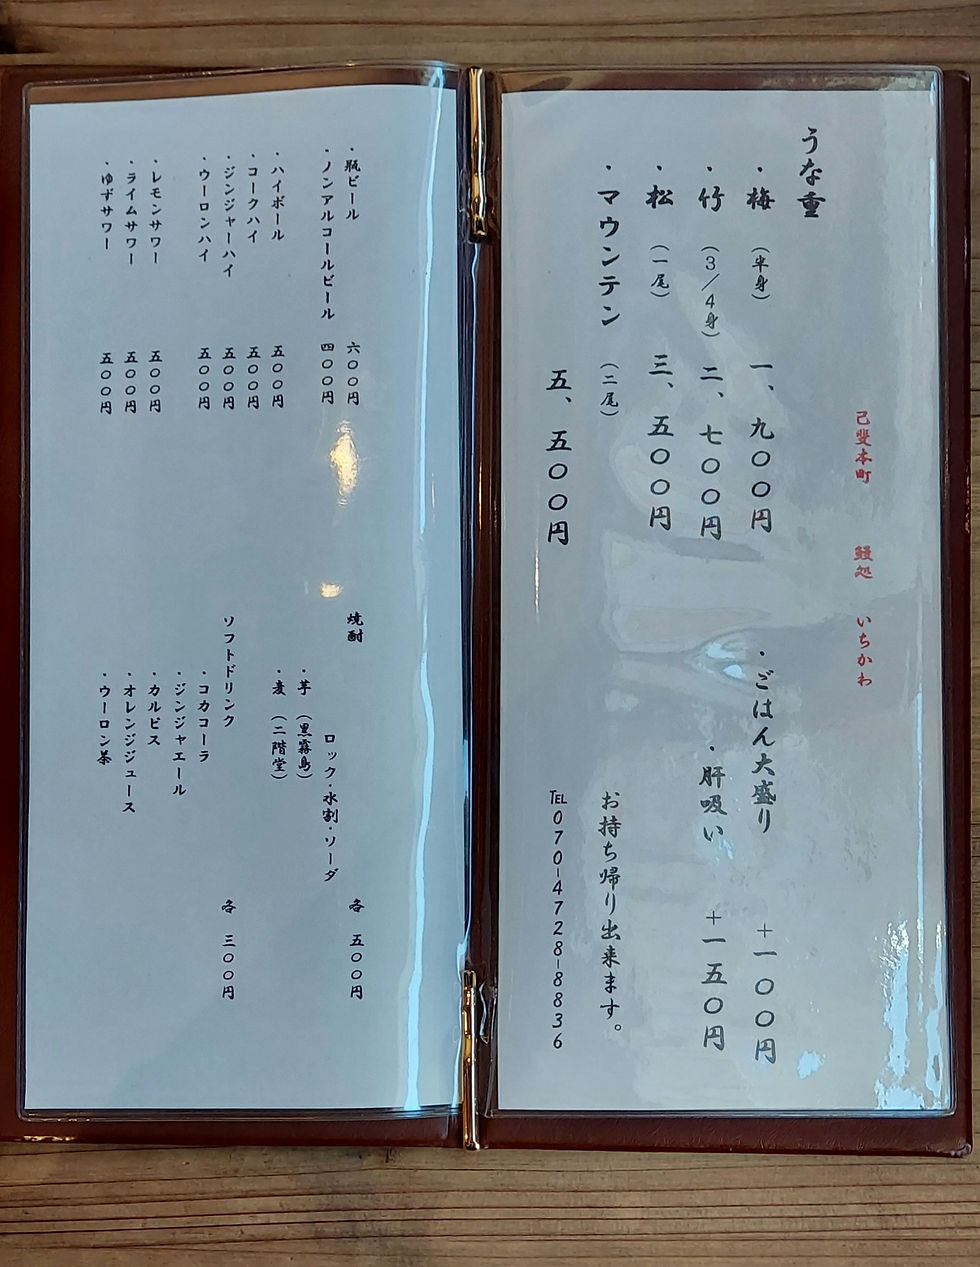 己斐本町 鰻処 いちかわ
うな重
・梅 （半身） 一、九〇〇円
・竹 （3／4身） 二、七〇〇円
・松 （一尾） 三、五〇〇円
・マウンテン （二尾）
五、五〇〇円
・ごはん大盛り ＋一〇〇円
・肝吸い ＋一五〇円
お持ち帰り出来ます。
TEL 070-4728-8836
・瓶ビール 六〇〇円
・ノンアルコールビール 四〇〇円
・ハイボール 五〇〇円
・コークハイ 五〇〇円
・ジンジャーハイ 五〇〇円
・ウーロンハイ 五〇〇円
・レモンサワー 五〇〇円
・ライムサワー 五〇〇円
・ゆずサワー 五〇〇円
焼酎 各 五〇〇円
ロック・水割・ソーダ
・芋 （黒霧島）
・麦 （二階堂）
ソフトドリンク 各 三〇〇円
・コカコーラ
・ジンジャエール
・カルピス
・オレンジジュース
・ウーロン茶